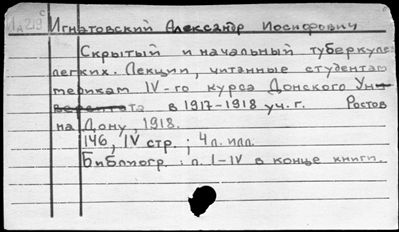 1д219 с
Игнатовский Александр Иосифович
Скрытый и начальный туберкулез
легких. Лекции, читанные студентам
терикам IV-го курса Донского Уни-
та в 1917-1918 уч. г. Ростов
на Дону, 1918.
146, IV стр.; 4 л. илл.
Библиогр.: п. I-IV в конце книги.